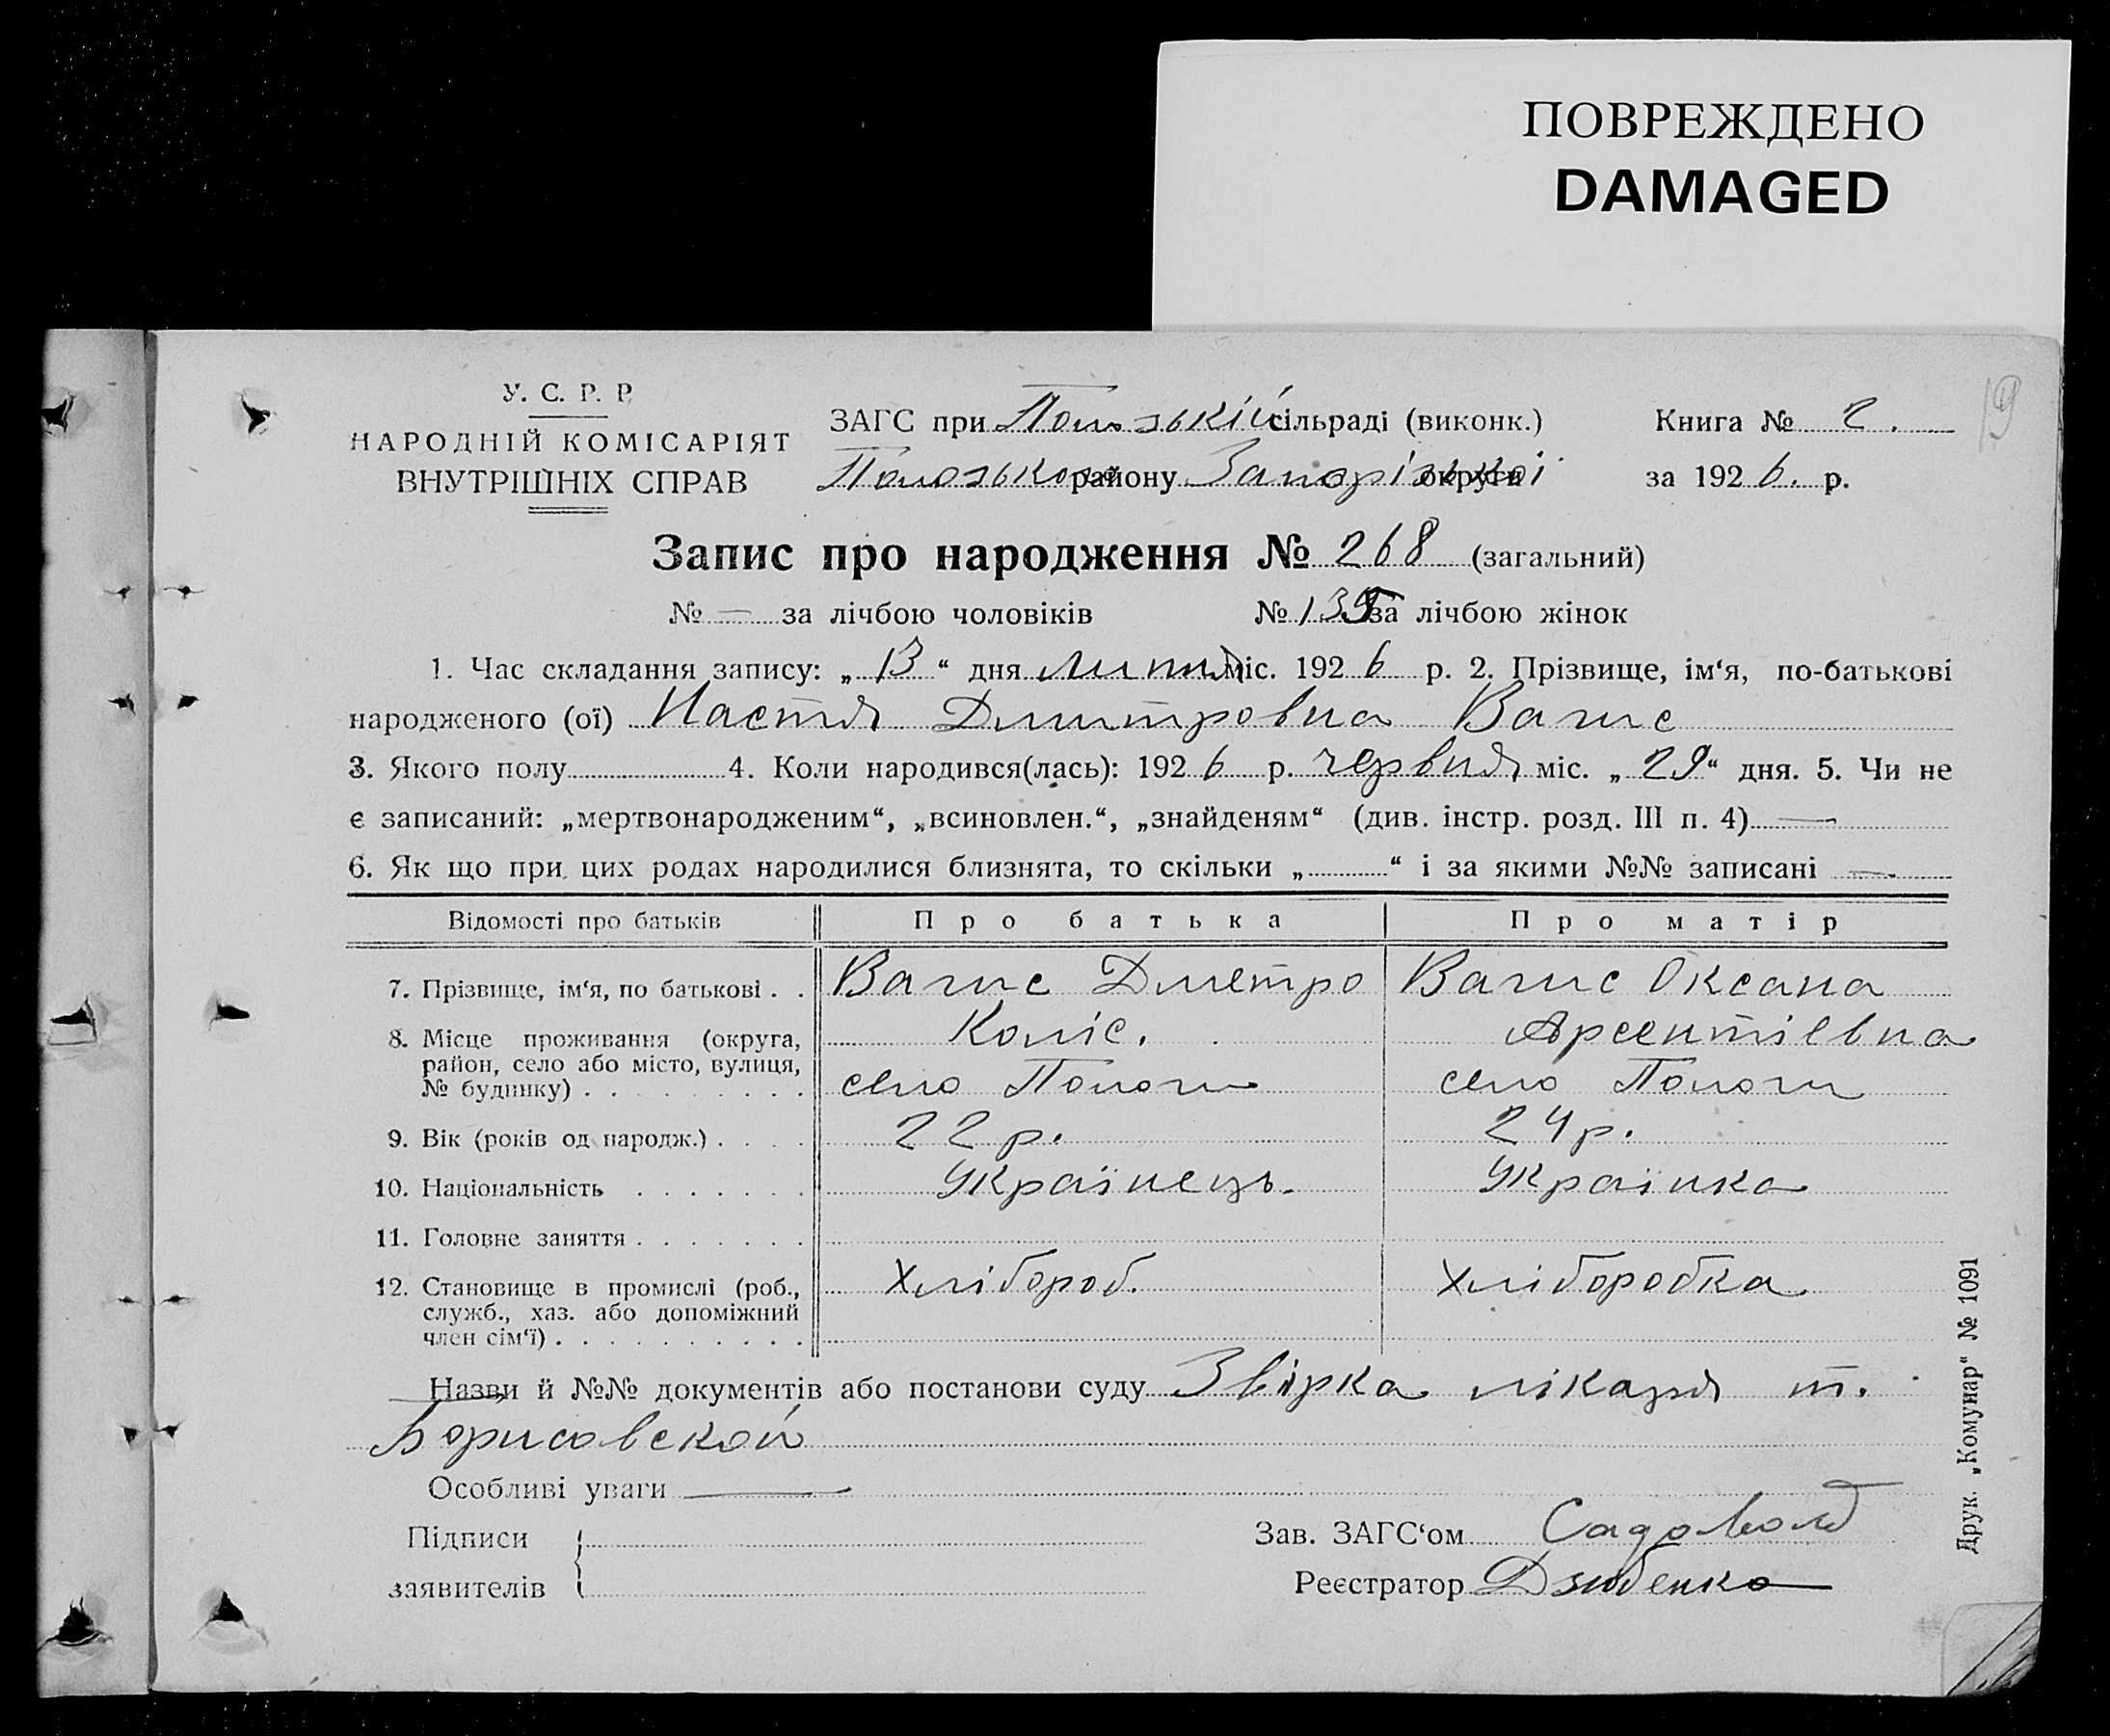 ПОВРЕЖДЕНО
DAMAGED
19
У. С. Р. Р.
НАРОДНІЙ КОМІСАРІЯТ
ВНУТРІШНІХ СПРАВ
ЗАГС при Полозькій сільраді (виконк.)
Полозького району Запорізької округи
Книга № 2.
за 1926. р.
Запис про народження № 268 (загальний)
№ — за лічбою чоловіків № 135 за лічбою жінок
1. Час складання запису: „13“ дня липня міс. 1926 р. 2. Прізвище, ім‘я, по-батькові
народженого (ої) Настя Дмитровна Вагис
3. Якого полу 4. Коли народився(лась): 1926 р. червня міс. „29“ дня. 5. Чи не
є записаний: „мертвонародженим“, „всиновлен.“, „знайденям“ (див. інстр. розд. III п. 4) —
6. Як що при цих родах народилися близнята, то скільки „ “ і за якими №№ записані —
Відомості про батьків Про батька Про матір
7. Прізвище, ім‘я, по батькові . . Вагис Дметро Вагис Оксана
8. Місце проживання (округа, Арсентіевна
район, село або місто, вулиця,
№ будинку) . . . . . . . . . село Пологи село Пологи
9. Вік (років од народж.) . . . . 22 р. 24 р.
10. Національність . . . . . . . Українець. Українка
11. Головне заняття . . . . . . .
12. Становище в промислі (роб., Хлібороб. Хліборобка
служб., хаз. або допоміжний
член сім‘ї) . . . . . . . . . .
Назви й №№ документів або постанови суду Звірка лікаря т.
Борисовской
Особливі уваги —
Підписи
заявителів
Зав. ЗАГС‘ом
Реєстратор Дзюбенко
Друк. „Комунар“ № 1091